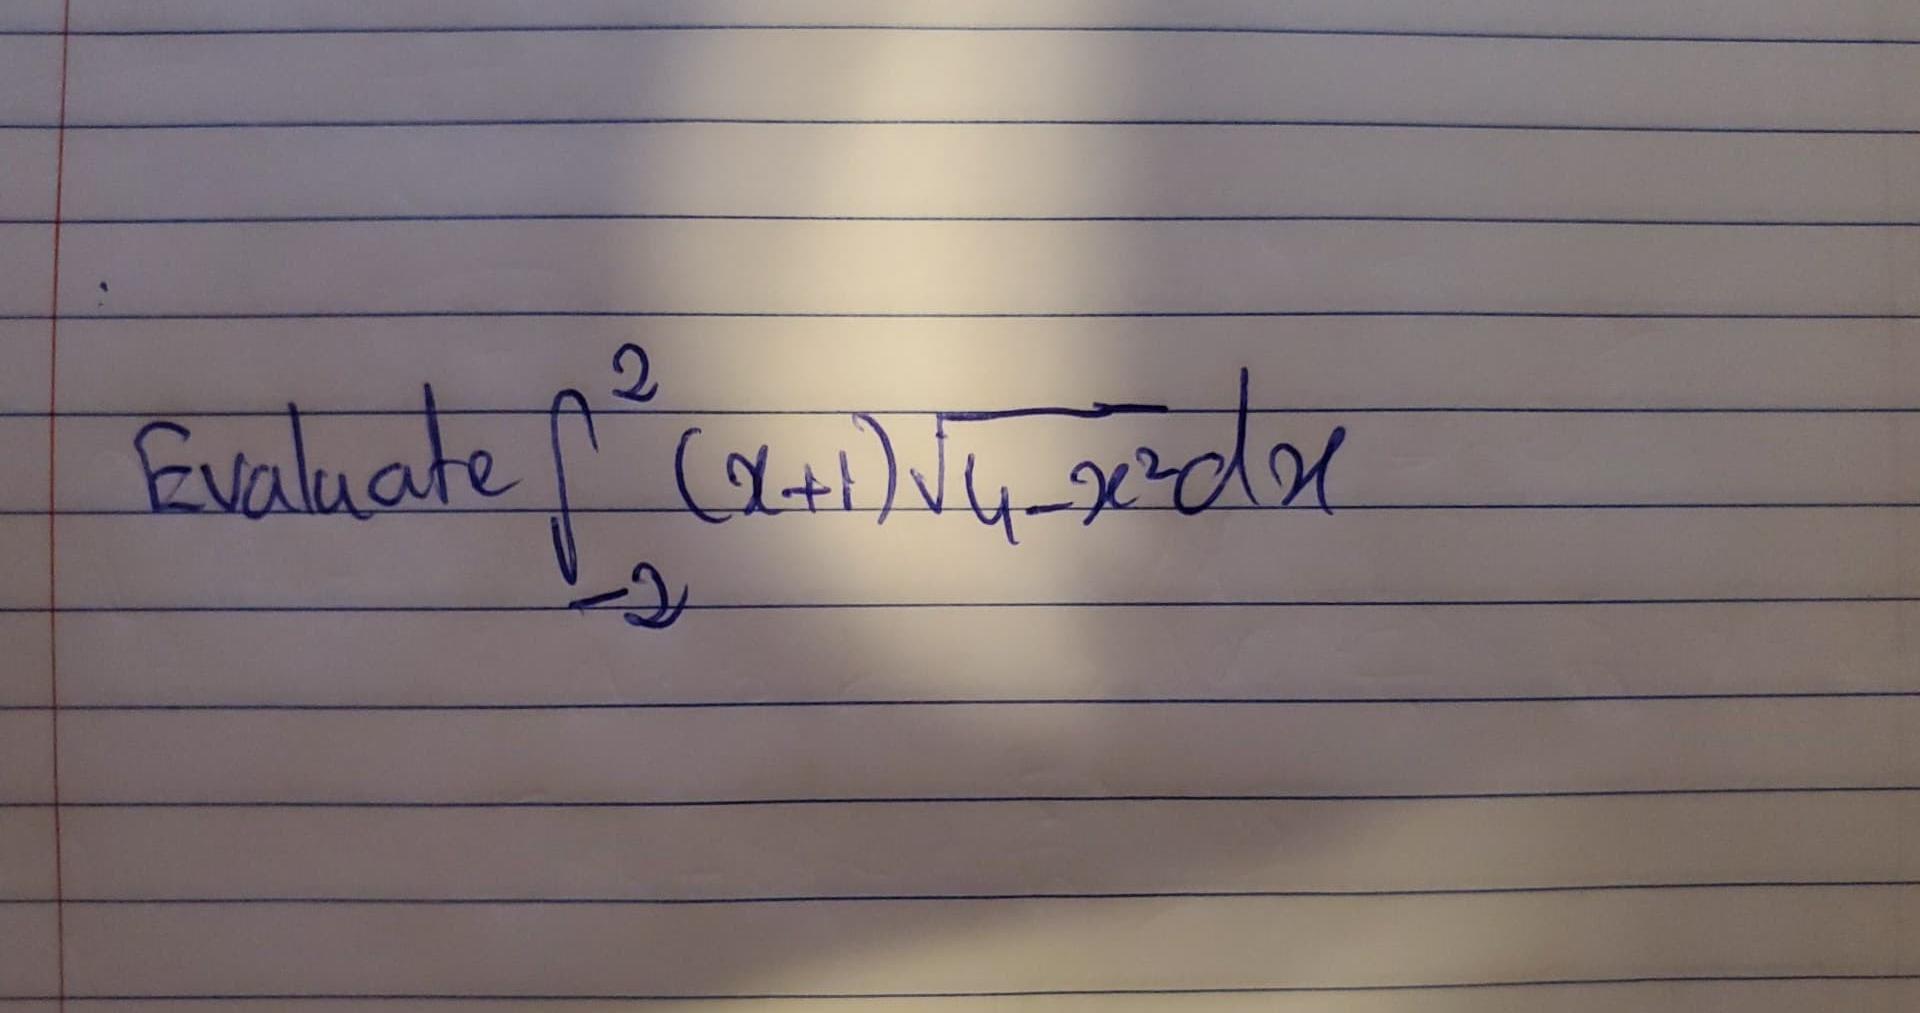 Evaluate ∫_{-2}^{2} (x+1)√(4-x²) dx